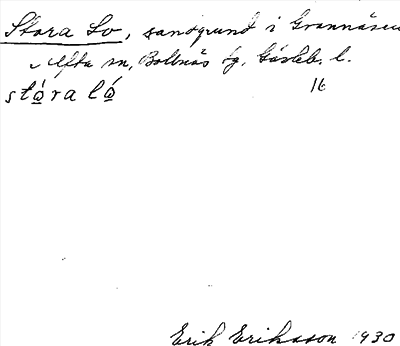 Stora Lo, sandgrund i Grannäsen
Alfta sn, Bollnäs fg, Gävleb. l.
stó̲raló̲ 16
Erik Eriksson 1930